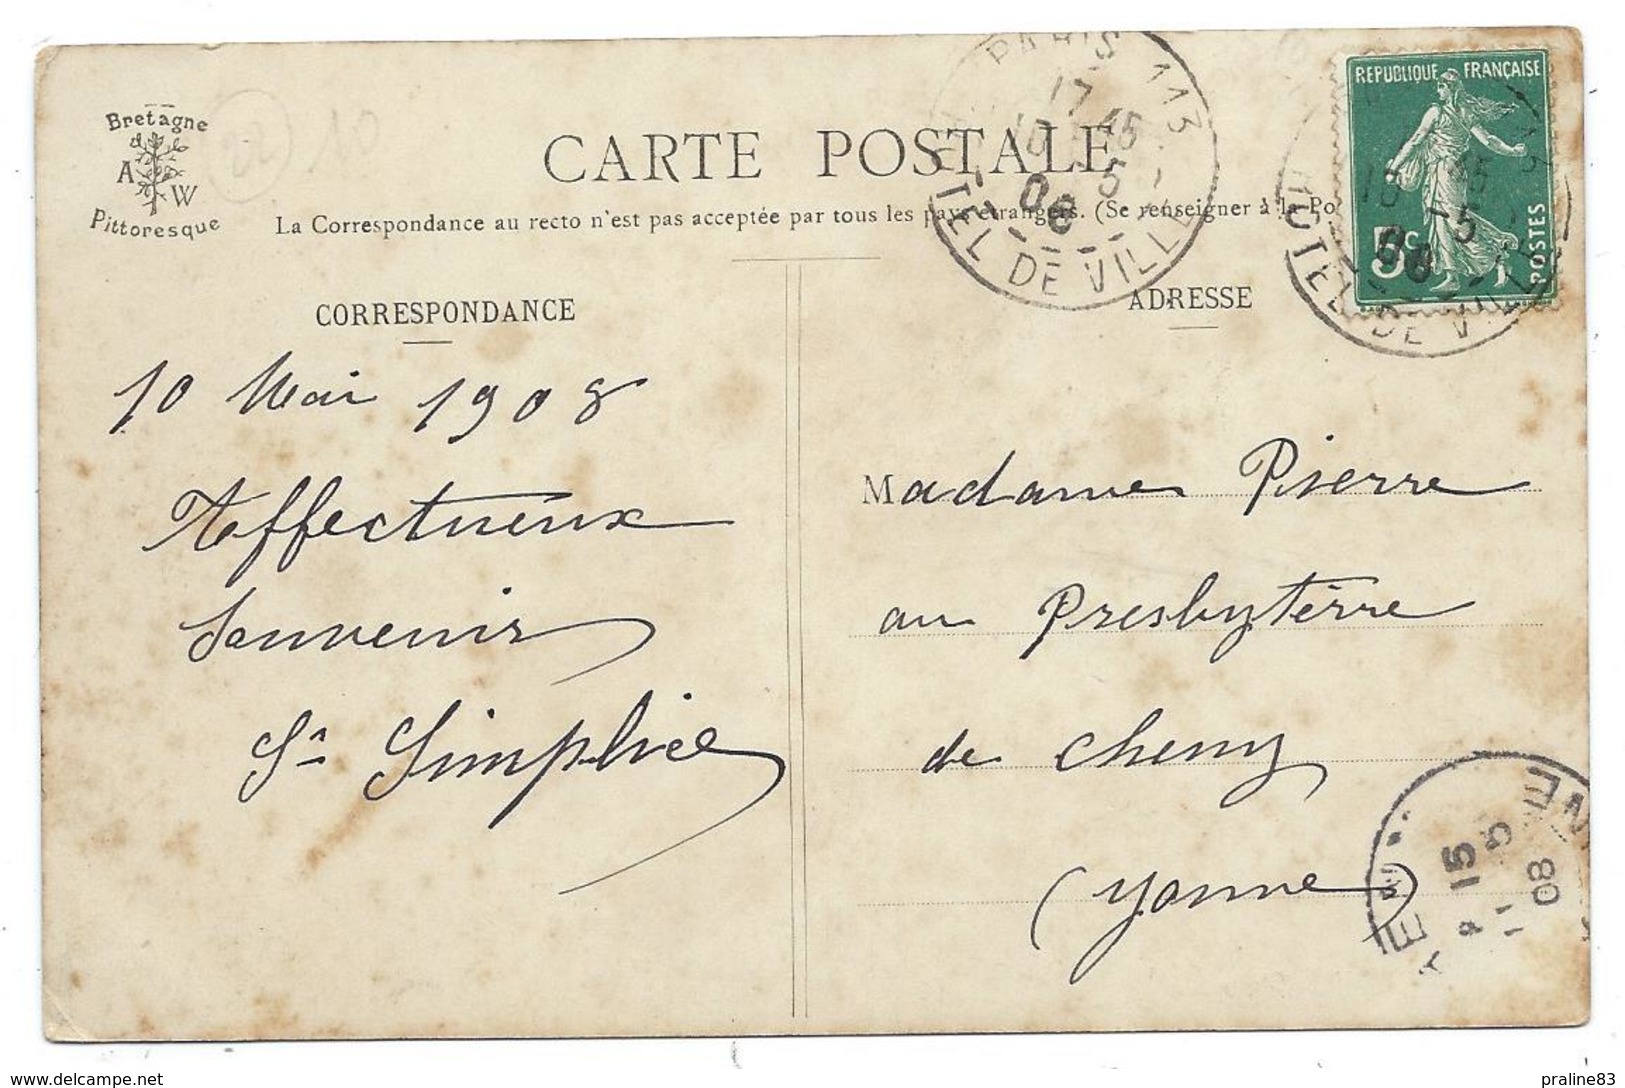 Bretagne
A W
Pittoresque
22 10
CARTE POSTALE
La Correspondance au recto n'est pas acceptée par tous les pays étrangers. (Se renseigner à la Po
PARIS 113
17 45
10 5
08
HOTEL DE VILLE
REPUBLIQUE FRANÇAISE
5c
POSTES
HOTEL DE VILLE
CORRESPONDANCE
10 Mai 1908
Affectueux
Souvenir
Sr Simplice
ADRESSE
Madame Pierre
au Presbytère
de Cheny
(Yonne)
15
5
08
www.delcampe.net
praline83